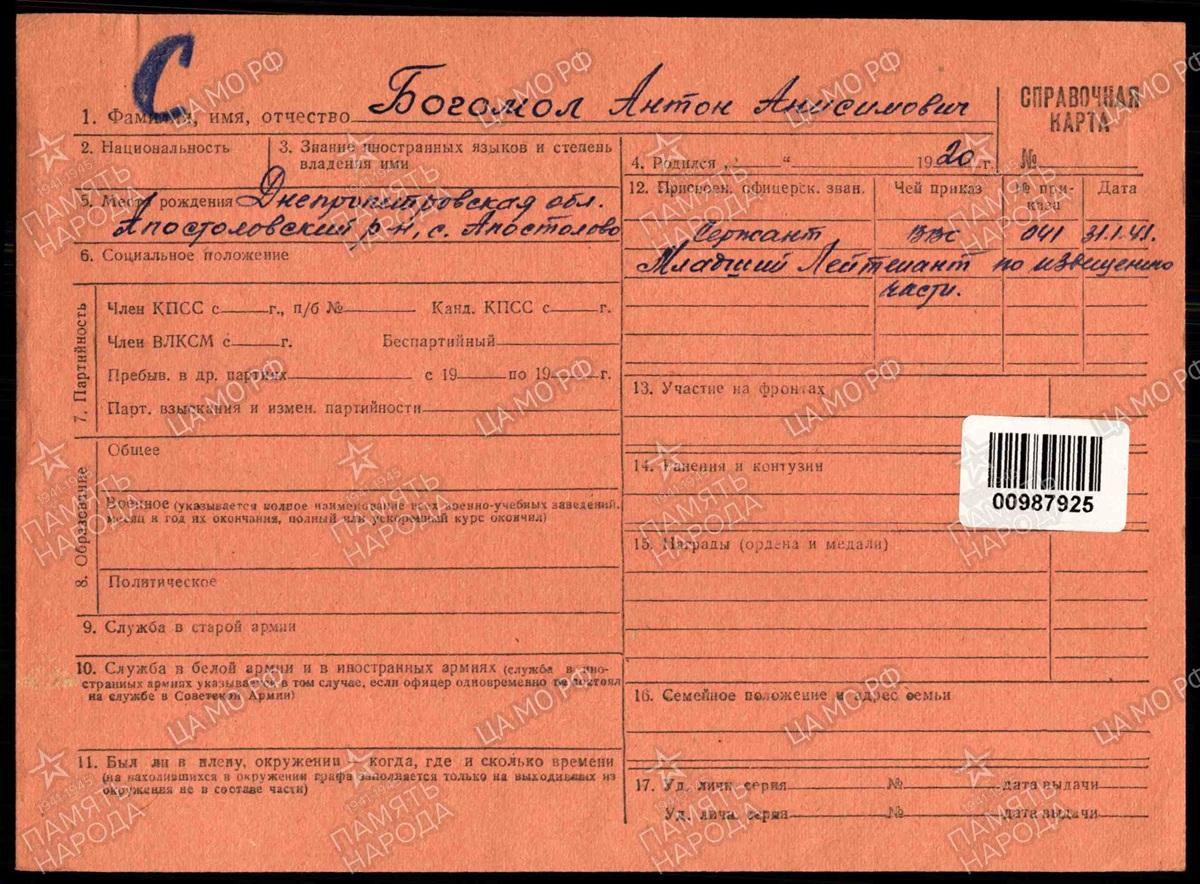 С
1. Фамилия, имя, отчество Богомол Антон Анисимович
СПРАВОЧНАЯ
КАРТА
2. Национальность
3. Знание иностранных языков и степень
владения ими
4. Родился „ “ 1920 г.
№
5. Место рождения Днепропитровская обл.
Апостоловский р-н, с. Апостолово
6. Социальное положение
7. Партийность
Член КПСС с г., п/б № Канд. КПСС с г.
Член ВЛКСМ с г. Беспартийный
Пребыв. в др. партиях с 19 по 19 г.
Парт. взыскания и измен. партийности
8. Образование
Общее
Военное (указывается полное наименование всех военно-учебных заведений,
месяц и год их окончания, полный или ускоренный курс окончил)
Политическое
9. Служба в старой армии
10. Служба в белой армии и в иностранных армиях (служба в ино-
странных армиях указывается в том случае, если офицер одновременно не состоял
на службе в Советской Армии)
11. Был ли в плену, окружении когда, где и сколько времени
(на находившихся в окружении графа заполняется только на выходивших из
окружения не в составе части)
12. Присвоен. офицерск. зван. Чей приказ № при-
каза Дата
Сержант ВВС 041 31.1.41.
Младший Лейтенант по извещению
части.
13. Участие на фронтах
14. Ранения и контузии
00987925
15. Награды (ордена и медали)
16. Семейное положение и адрес семьи
17. Уд. личн серия № дата выдачи
Уд. личн. серия № дата выдачи
ЦА МО РФ
1941-1945
ПАМЯТЬ
НАРОДА